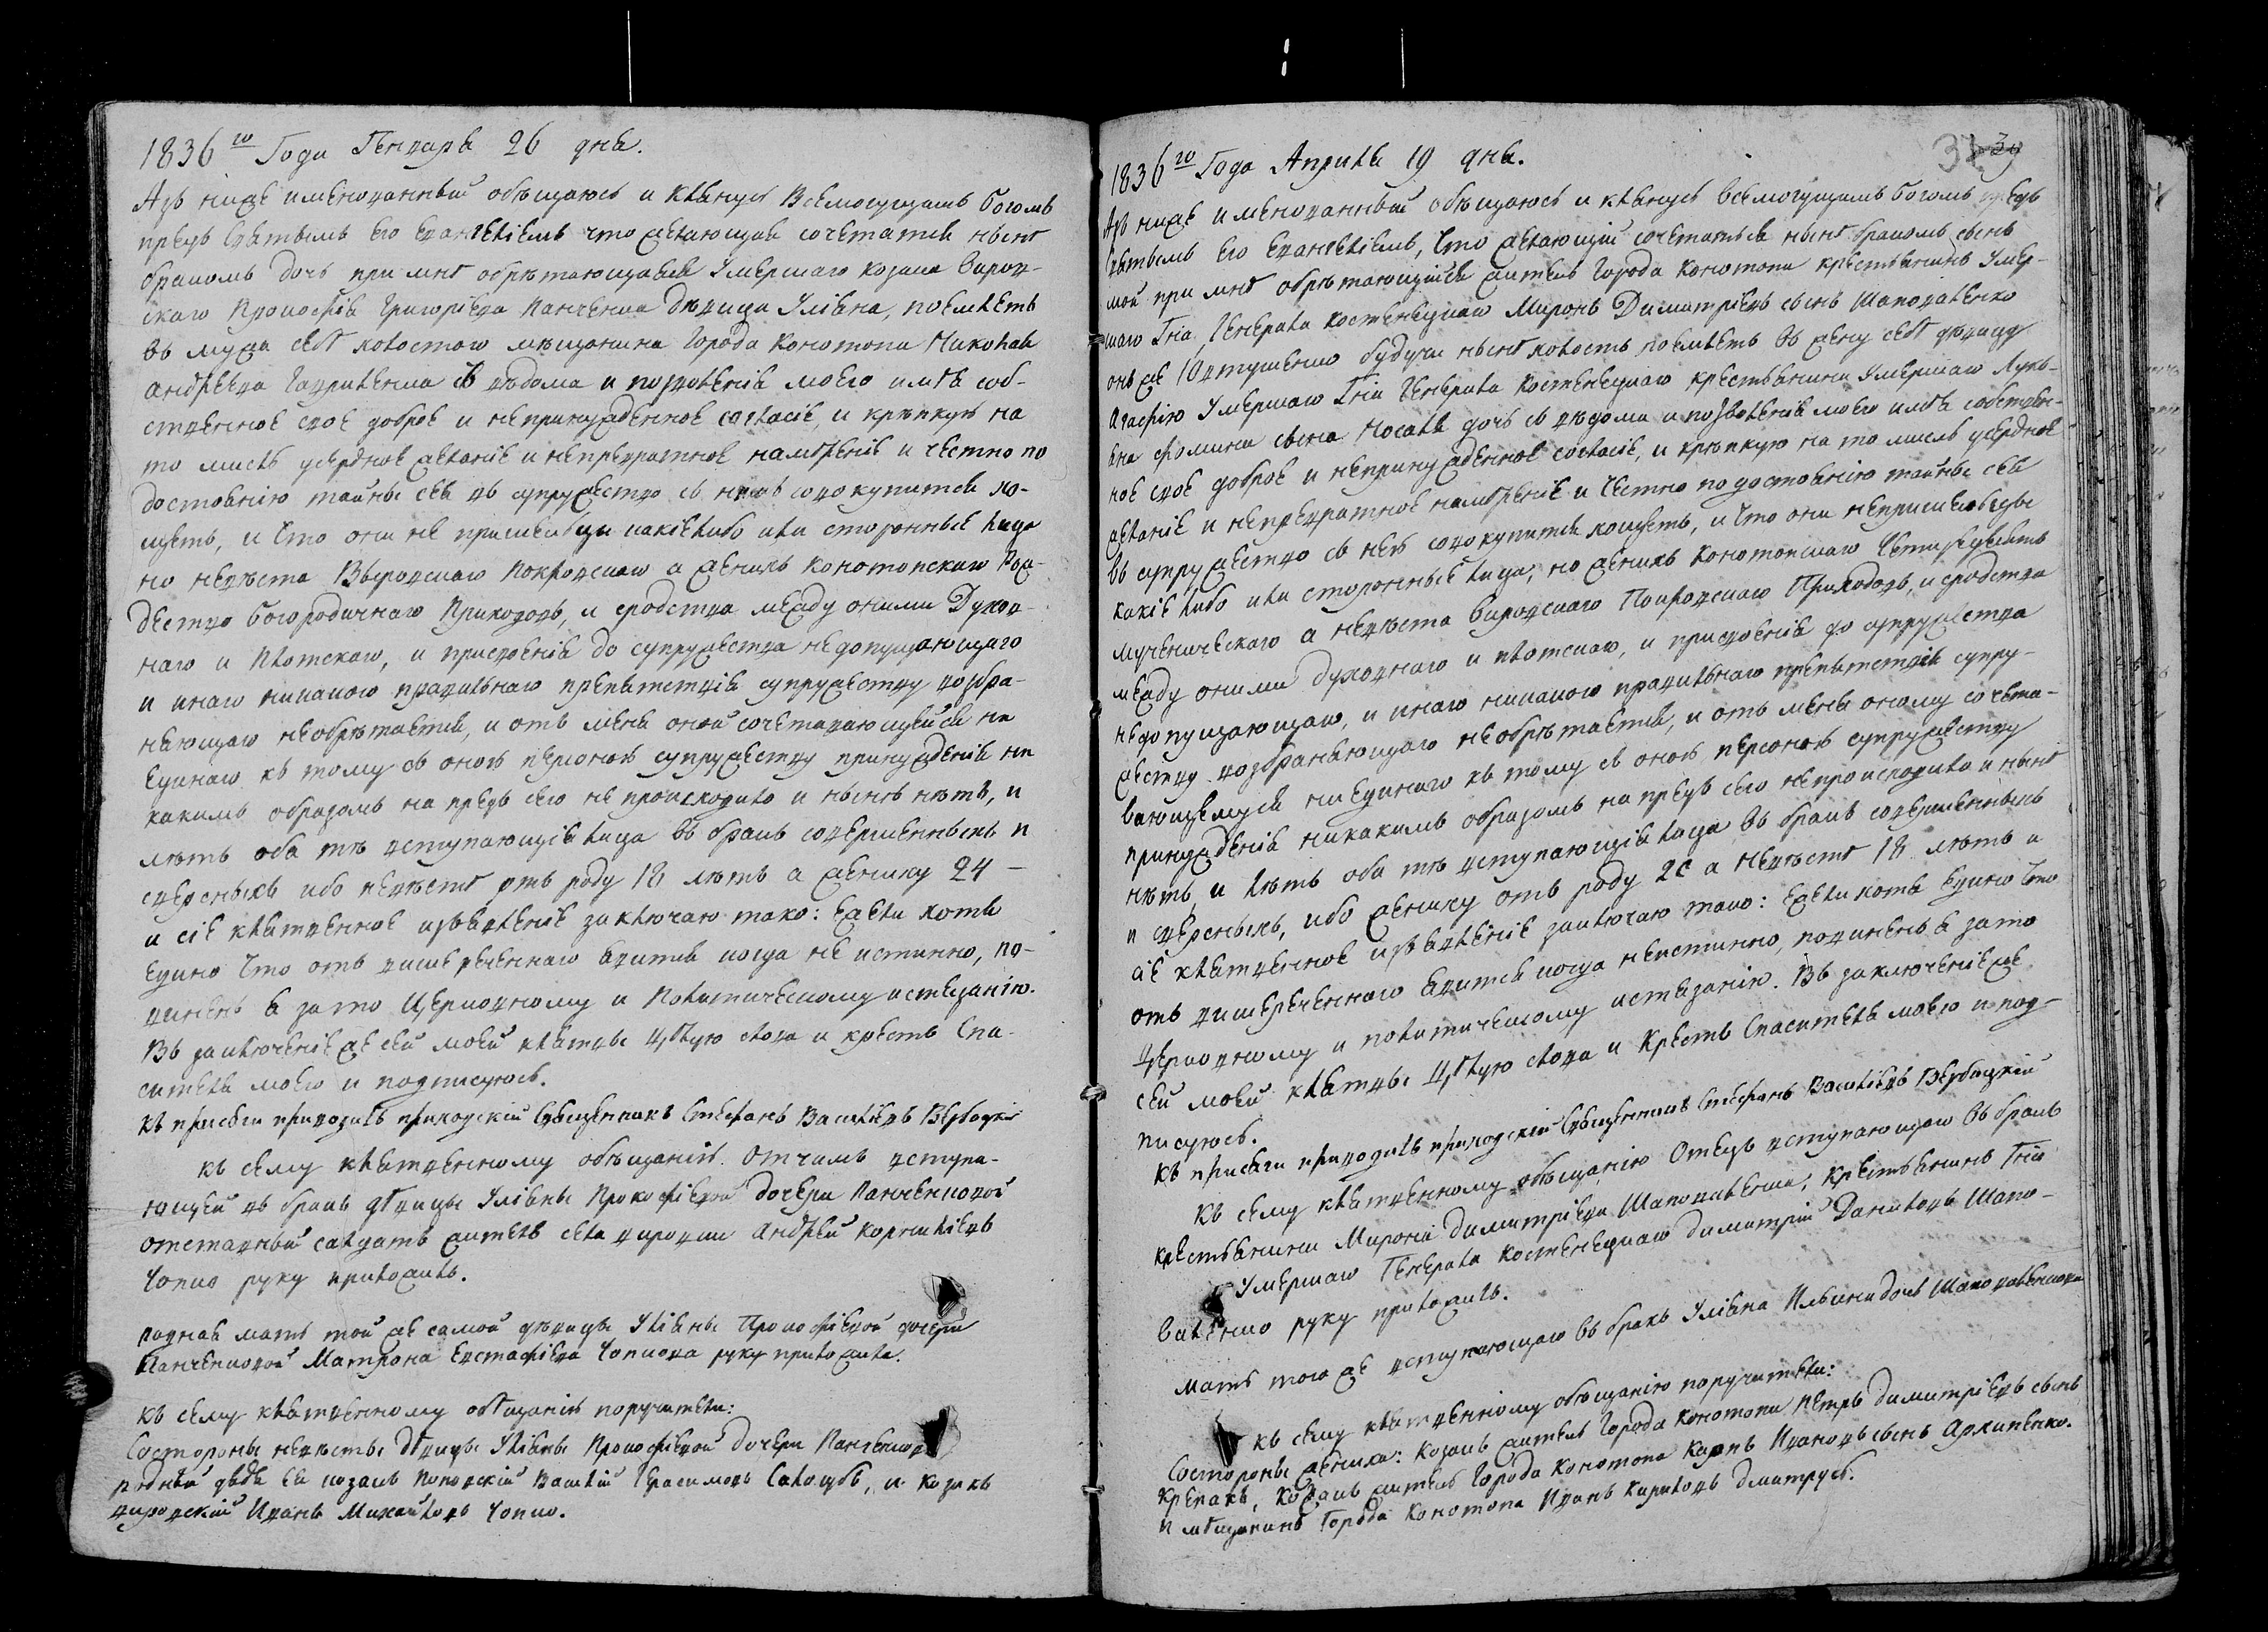 1836го Года Генваря 26 дня.
Азъ ниже именованный обѣщаюсь и клянусь Всемогущимъ Богомъ
предъ Святымъ Его Евангеліемъ что желающая сочетатся нынѣ
бракомъ дочь при мнѣ обрѣтающаяся Умершаго козака Виров-
скаго Прокофія Григоріева Панченка дѣвица Уліана, поемлетъ
въ мужа себѣ холостаго мѣщанина Города Конотопа Николая
Андреева Гавриленка съ вѣдома и позволенія моего имѣя соб-
ственное свое доброе и непринужденное согласіе, и крѣпкую на
то мысль усердное желаніе и непревратное намѣреніе и честно по
достоянію тайны сея въ супружество съ нимъ совокупитися хо-
щетъ, и что они не пришельцы какіелибо или сторонные лица
но невѣста Выровскаго Покровскаго а женихъ Конотопскаго Рож-
дество Богородичнаго Приходовъ, и сродства между оными Духов-
наго и Плотскаго, и присвоенія до супружества недопущающаго
и инаго никакого правильнаго препятствія супружеству возбра-
няющаго необрѣтается, и отъ меня оной сочетавающейся ни
единаго къ тому съ оною персоною супружеству принужденія ни
какимъ образомъ на предъ сего не происходило и нынѣ нѣтъ, и
лѣтъ оба тѣ вступающіе лица въ бракъ совершенныхъ и
сверсныхъ ибо невѣстѣ отъ роду 18 лѣтъ а жениху 24 —
и сіе клятвенное изъявленіе заключаю тако: Ежели хотя
едино что отъ вышереченнаго явится когда не истинно, по-
виненъ я зато Церковному и Политическому истязанію.
Въ заключеніе же сей моей клятвы цѣлую слова и крестъ Спа-
сителя моего и подписуюсь.
Къ присяги приводилъ приходскій Священникъ Стефанъ Василіевъ Вербицкій
Къ сему клятвенному обѣщанію Отчимъ вступа-
ющей въ бракъ дѣвицы Уліаны Прокофіевой дочери Панченковой
отставный салдатъ житель села Вировки Андрей Корниліевъ
Чопко руку приложилъ.
родная мать той же самой дѣвицы Уліаны Прокофіевой дочери
Панченковой Матрона Евстафіева Чопкова руку приложила.
Къ сему клятвенному обѣщанію поручители:
Состороны невѣсты дѣвицы Уліаны Прокофіевой дочери Панченковой
родный дядя ея козакъ Поповскій Василій Герасимовъ Сологубъ, и козакъ
вировскій Иванъ Михайловъ Чопко.
1836го Года Апрѣля 19 дня.
Азъ ниже именованный обѣщаюсь и клянусь всемогущимъ Богомъ предъ
святымъ Его Евангеліемъ, Что желающій сочетатъся нынѣ бракомъ сынъ
мой при мнѣ обрѣтающійся житель Города Конотопа крестьянинъ Умер-
шаго Гна Генерала Костенецкаго Миронъ Димитріевъ сынъ Шаповаленко
онъ же Ювтушенко будучи нынѣ холостъ поемлетъ въ жену себѣ дѣвицу
Агафію Умершаго Гна Генерала Костенецкаго крестьянина Умершаго Лукь-
яна Фомина сына Носаля дочь съ вѣдома и позволенія моего имѣя собствен-
ное свое доброе и непринужденное согласіе, и крѣпкую на то мысль усердное
желаніе и непревратное намѣреніе и Честно по достоянію тайны сея
въ супружество съ нею совокупитися хощетъ, и что они непришельцы
какіелибо или сторонные лица, но женихъ Конотопскаго Четиредесять
мученическаго а невѣста Вировскаго Покровскаго Приходовъ, и сродства
между оними духовнаго и плотскаго, и присвоенія до супружества
недопущающаго, и инаго никакого правильнаго препятствія супру-
жеству возбраняющаго необрѣтается, и отъ меня оному сочета-
вающемуся ниединаго къ тому съ оною персоною супружеству
принужденія никакимъ образомъ на предъ сего непроисходило и нынѣ
нѣтъ и лѣтъ оба тѣ вступающія лица въ бракъ совершенныхъ
и сверсныхъ, ибо жениху отъ роду 20 а невѣстѣ 18 лѣтъ и
сіе клятвенное изъявленіе заключаю тако: Ежели хотя едино что
отъ вишереченнаго явится когда неистинно, повиненъ я зато
Церковному и политическому истязанію. Въ заключеніе же
сей моей клятвы цѣлую слова и Крестъ Спасителя моего и под-
писуюсь.
Къ присяги приводилъ приходскій Священникъ Стефанъ Василіевъ Вербицкій
Къ сему клятвенному обѣщанію Отецъ вступающаго въ бракъ
крестьянина Мирона Димитріева Шаповаленка, Крестьянинъ Гна
Умершаго Генерала Костенецкаго Димитрій Даниловъ Шапо-
валенко руку приложилъ.
Мать того же вступающаго въ бракъ Уліана Ильина дочь Шаповаленкова
Къ сему клятвенному обѣщанію поручители:
Состороны жениха: козакъ житель Города Конотопа Петръ Димитріевъ сынъ
Крепакъ, Козакъ житель Города Конотопа Карпъ Ивановъ сынъ Архипенко.
и мѣщанинъ Города Конотопа Иванъ Кириловъ Дмитрусъ.